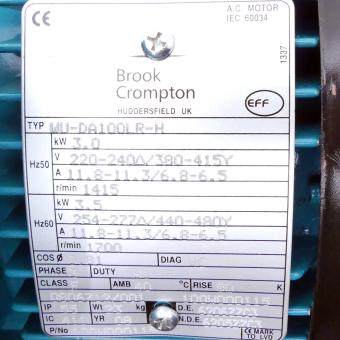 A.C. MOTOR
IEC 60034
Brook
Crompton
HUDDERSFIELD UK
1337
EFF
TYP WU-DA100LR-H
kW 3.0
Hz50 V 220-240Δ/380-415Y
A 11.8-11.3/6.8-6.5
r/min 1415
kW 3.5
Hz60 V 254-277Δ/440-480Y
A 11.8-11.3/6.8-6.5
r/min 1700
COS Ø DIAG
PHASE DUTY
CLASS AMB 40 °C RISE 80 K
IP kg D.E.
IC YR N.D.E.
P/No CE MARK
TO LVD